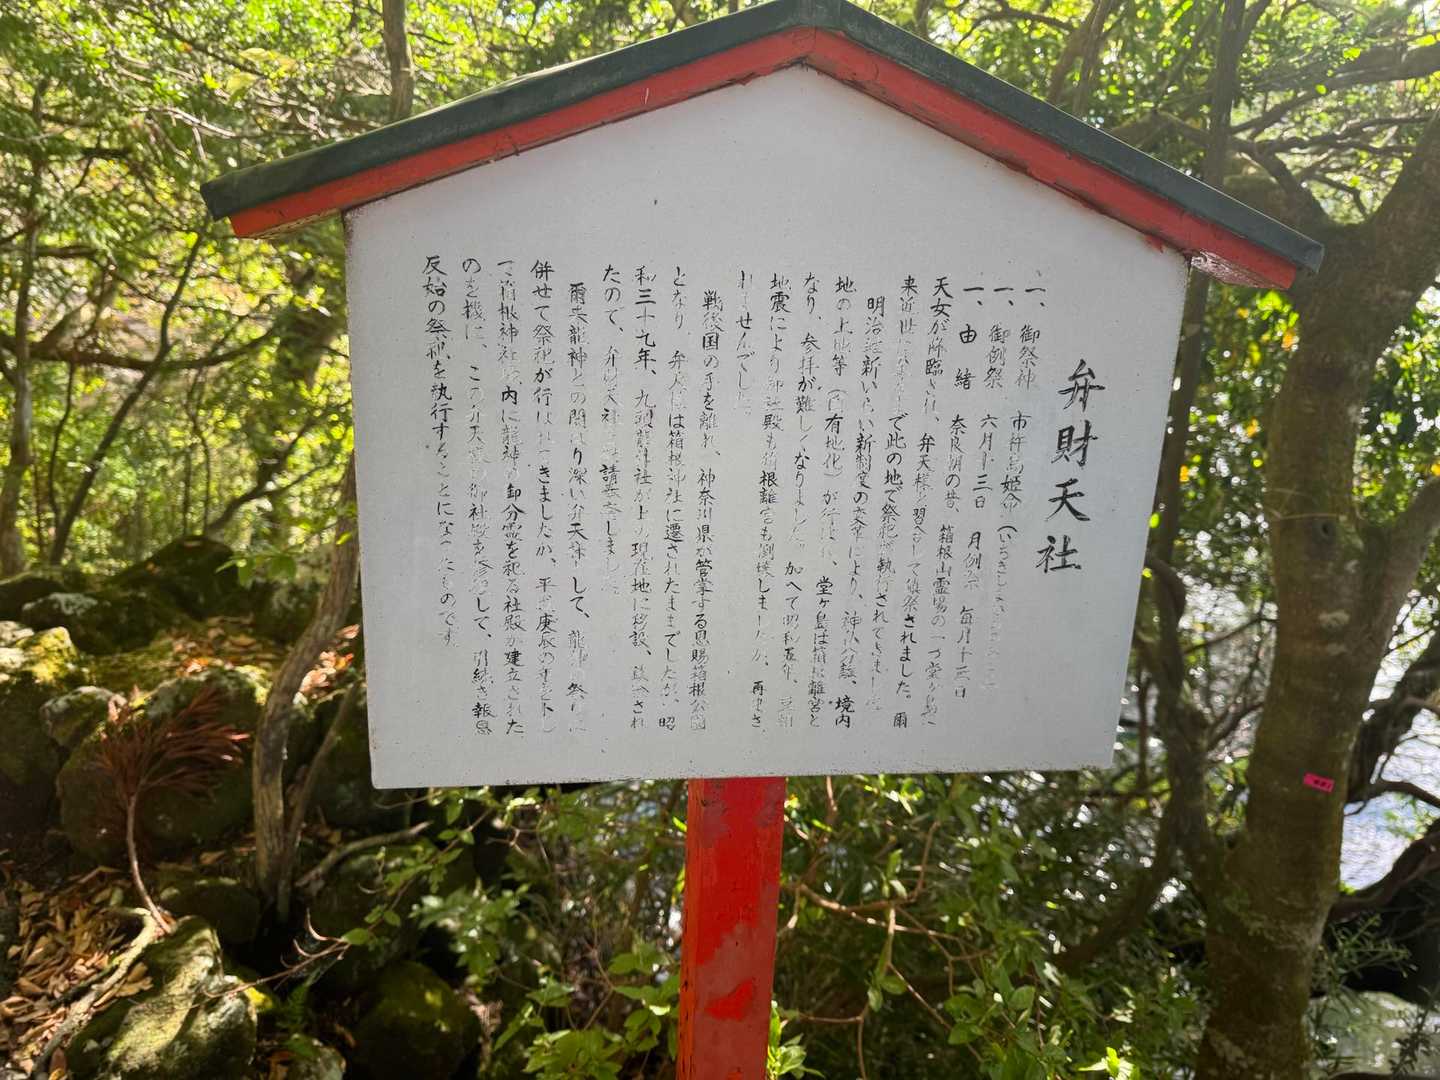 弁財天社
一、御祭神 市杵島姫命
一、御例祭 六月十三日 月例祭 毎月十三日
一、由緒 奈良朝の昔、箱根山霊場の一つ堂ヶ島へ
天女が降臨され、弁天様と習合して鎮祭されました。爾
来近世 で此の地で祭祀が執行されてきました
明治維新いらい新制度の変革により、神仏分離、境内
地の上地等（国有地化）が行はれ、堂ヶ島は箱根離宮と
なり、参拝が難しくなりました。加へて昭和五年、豆相
地震により御社殿も箱根離宮も倒壊しましたが、再建さ
れませんでした。
戦後国の手を離れ、神奈川県が管掌する恩賜箱根公園
となり、弁天 は箱根神社に遷されたままでしたが、昭
和三十九年、九頭龍神社が 現在地に移設、 され
たので、弁財天社 請 しました。
爾来龍神との関はり深い弁天様として、龍神の祭りに
併せて祭祀が行はれてきましたが、平成庚辰の年を トし
て箱根神社境内に龍神の御分霊を祀る社殿が建立された
のを機に、この弁天 御社殿を して、引続き報恩
反始の祭祀を執行することになったものです。